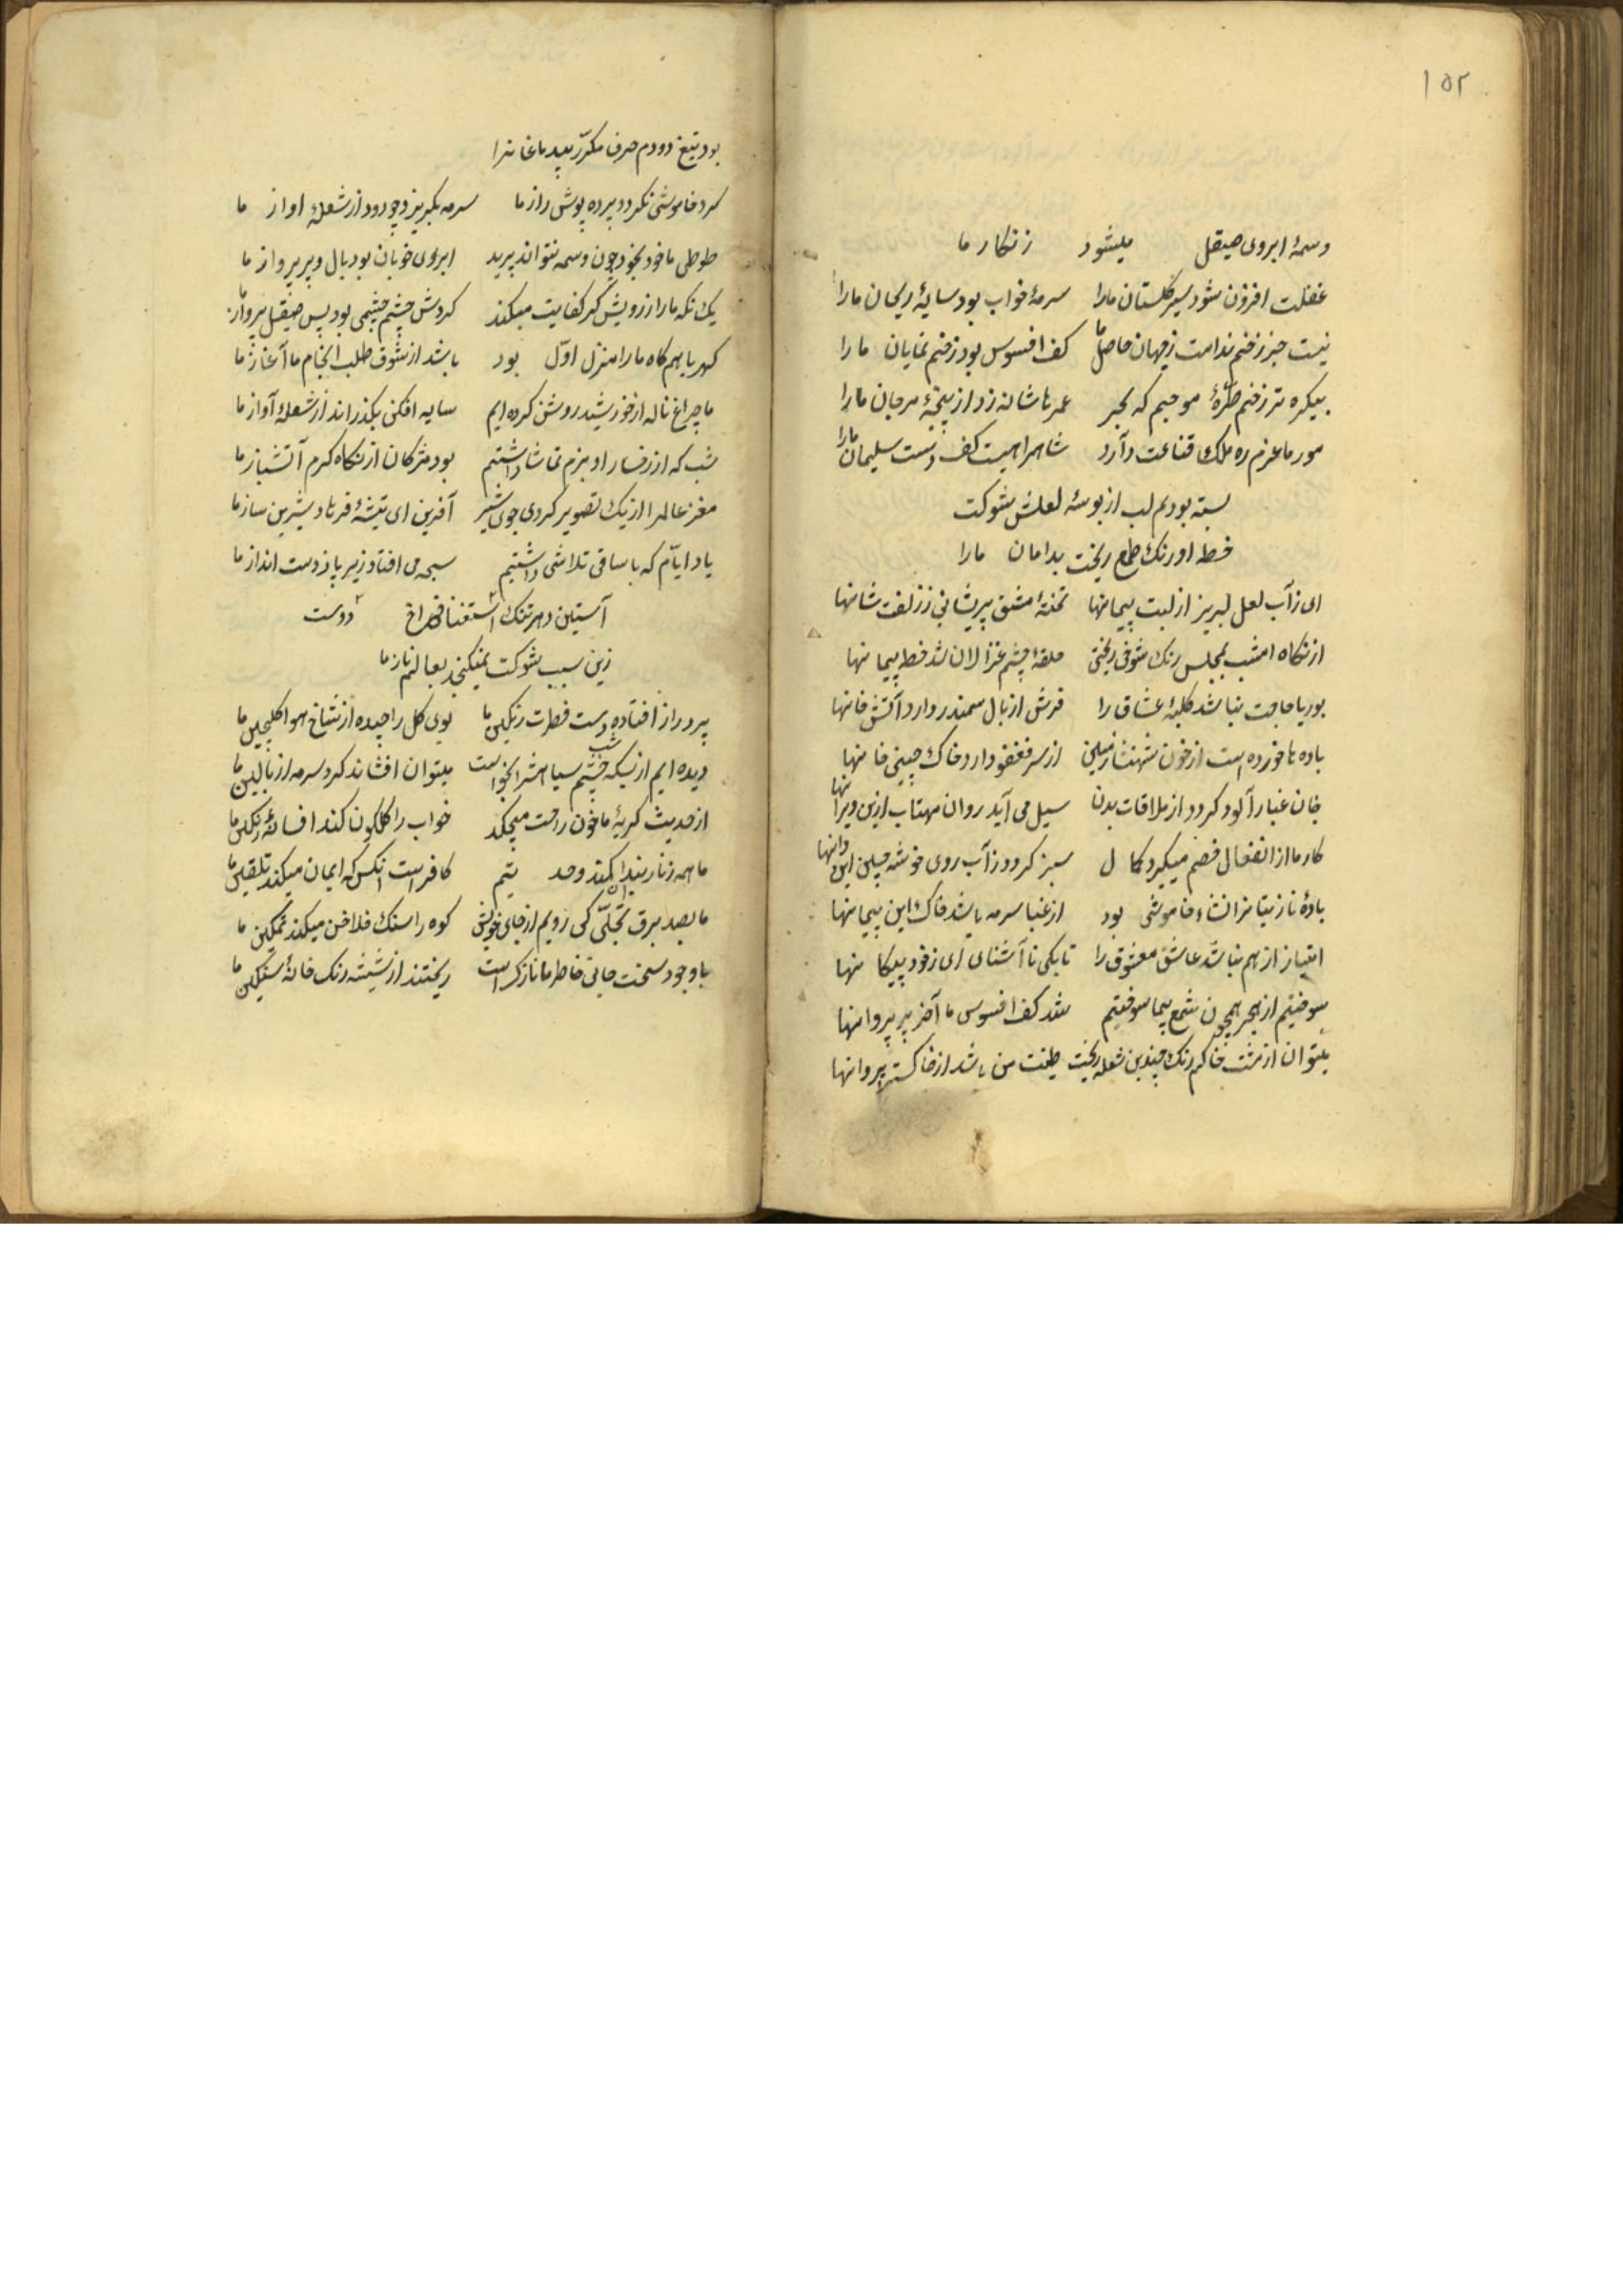 ۱۵۲
وسمهٔ ابروی صیقل میشود زنکار ما
غفلت افزون شود سیر کلستان مارا سرمهٔ خواب بود سایهٔ ریحان مارا
نیست جز زخم ندامت زجهان حاصل ما کف افسوس بود زخم نمایان مارا
بیکره تر زخم طرّهٔ موجیم که بحر عمرها شانه زد از پنجهٔ مرجان مارا
مور ما عزم ره ملک قناعت دارد شاهراهیست کف دست سلیمان مارا
بسته بودم لب از بوسهٔ لعلش شوکت
خط او رنک طمع ریخت بدامان مارا
ای زآب لعل لبریز از لبت پیمانها تختهٔ مشق پریشانی ززلفت شانها
از نکاه امشب بمجلس رنک شوقی ریختی حلقهٔ چشم غزالان شد خط پیمانها
بوریا حاجت نباشد کلبهٔ عشاق را فرش از بال سمندر دارد آتش خانها
باده ها خورده است از خون شهنشاه زمین از سر فغفور دارد خاک چینی خانها
خان غبار آلود کردد از ملاقات بدن سیل می آید روان مهتاب ازین ویرانها
کار ما از انفعال خصم میکیرد کمال سبز کردد زآب روی خوشه چین این دانها
بادهٔ ناز بتانرا نشاء خاموشی بود از غبار سرمه باشد خاک این پیمانها
امتیاز از هم نباشد عاشق و معشوق را تا بکی نا آشنای ای زخود بیکانها
سوختیم از هجر همچون شمع بیما سوختیم شد کف افسوس ما آخر پر پروانها
میتوان از مشت خاکم رنک چندین شعله ریخت طینت من باشد از خاکستر پروانها
بود تیغ دودم صرف مکرّر بیدماغانرا
کرد خاموشی نکردد پرده پوش راز ما سرمه بکریزد چو دود از شعلهٔ اواز ما
طوطی ما خود بخود چون وسمه نتواند پرید ابروی خوبان بود بال و پر پرواز ما
یک نکه مارا ز رویش کر کفایت میکند کردش چشم چشمی بود پس صیقل پرواز ما
کهربا هم کاه مارا منزل اوّل بود باشد از شوق طلب انجام ما آغاز ما
ما چراغ ناله از خورشید روشن کرده ایم سایه افکنی بکذراند از شعلهٔ آواز ما
شب که از رخسار او بزم تماشا داشتیم بود مژکان از نکاه کرم آتشباز ما
مغز عالم را از یک تصویر کردی جوی شیر آفرین ای تیشهٔ فرهاد شیرین ساز ما
یاد ایّام که با ساقی تلاشی داشتیم سبحه می افتاد زیر پا ز دست انداز ما
آستین دهر تنک استغنا فراخ دوست
زین سبب شوکت نمیکنجد بعالم ناز ما
پر دراز افتاده دست فطرت رنکین ما بوی کل را چیده از شاخ هوا کلچین ما
دیده ایم از بسکه چشم سیاهش را بخواب میتوان افشاند کرد سرمه از بالین ما
از حدیث کریهٔ ما خون راحت میچکد خواب را کلکون کند افسانهٔ رنکین ما
ما همه زنار بندان کمند وحدتیم کافر است انکس که ایمان میکند تلقین ما
ما بصد برق تجلّی کی رویم از جای خویش کوه را سنک فلاخن میکند تمکین ما
باوجود سخت جانی خاطر ما نازک است ریختند از شیشه رنک خانهٔ سنکین ما